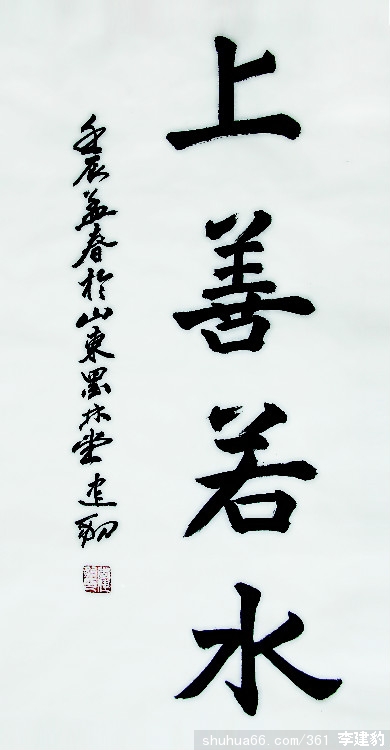 上善若水
壬辰孟春於山東墨林堂建豹
shuhua66.com/361 李建豹